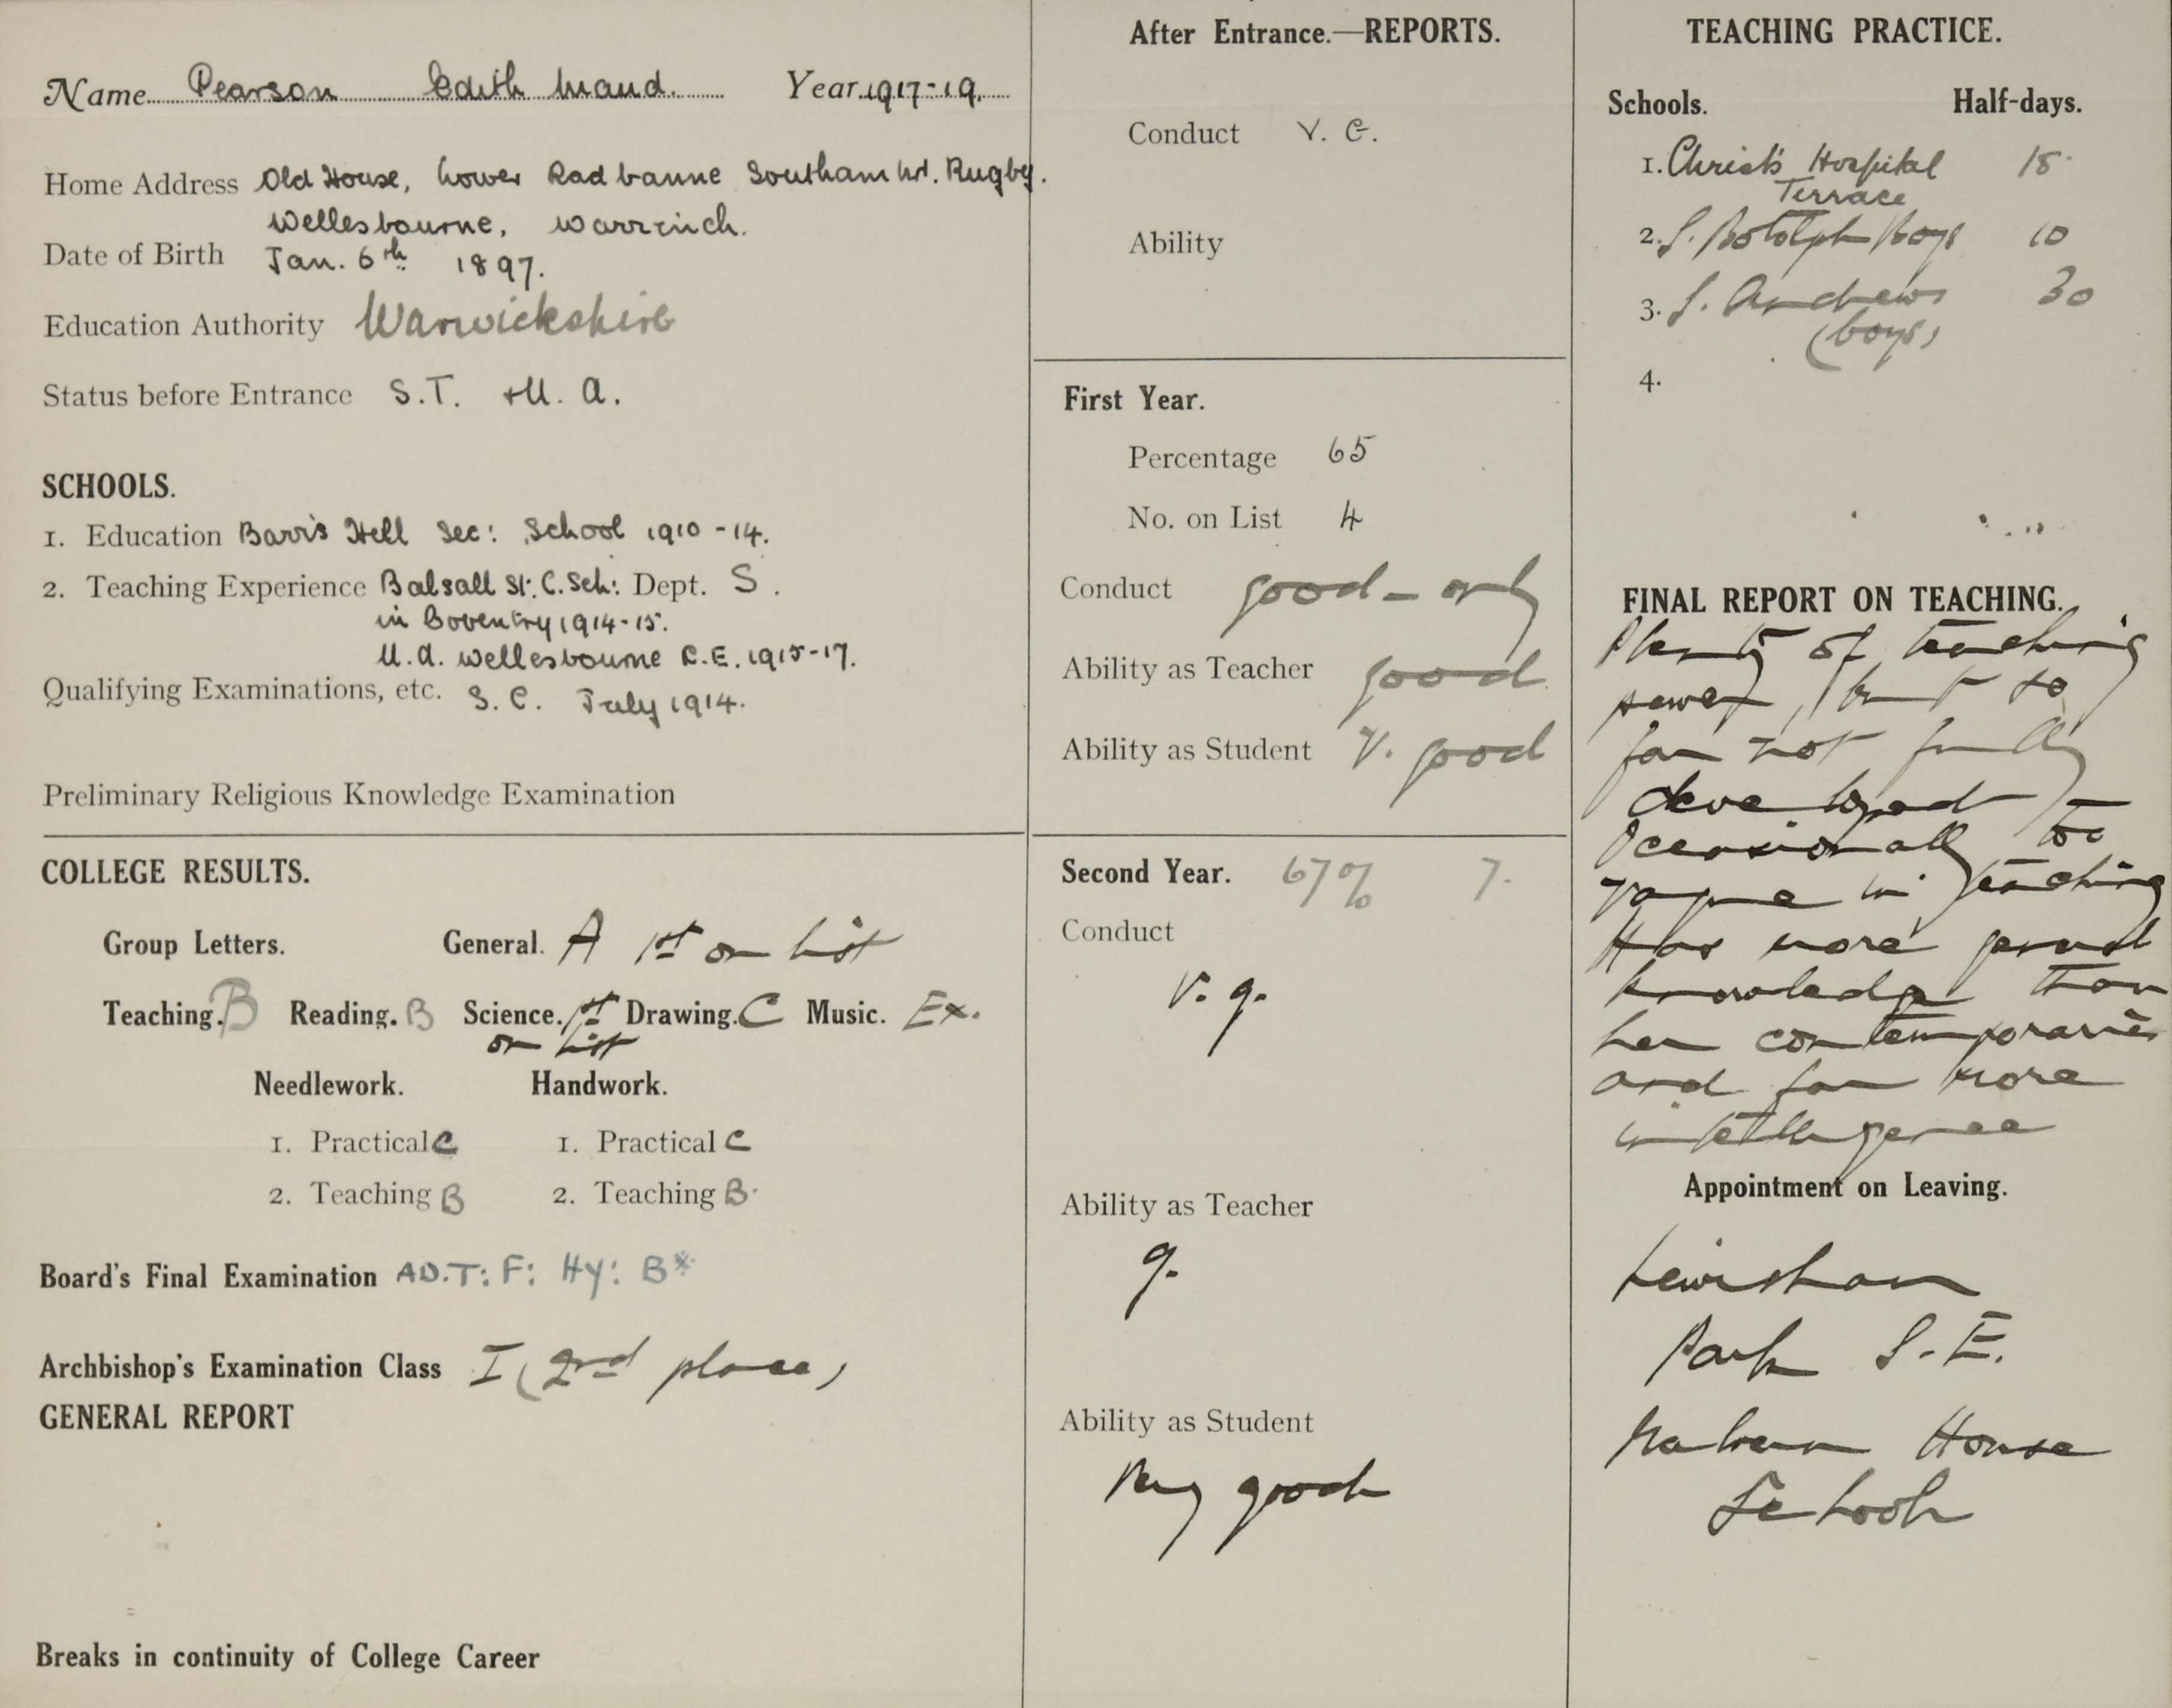 Name Pearson Edith Maud. Year 1917-19.
Home Address Old House, Lower Radbourne Southam Nr. Rugby.
Wellesbourne, Warwick.
Date of Birth Jan. 6th 1897.
Education Authority Warwickshire
Status before Entrance S.T. + U. A.
SCHOOLS.
1. Education Barr's Hill Sec: School 1910-14.
2. Teaching Experience Balsall St: C. Sch: Dept. S.
in Coventry 1914-15.
U.A. Wellesbourne C.E. 1915-17.
Qualifying Examinations, etc. S.C. July 1914.
Preliminary Religious Knowledge Examination
COLLEGE RESULTS.
Group Letters. General. A 1st on list
Teaching. B Reading. B Science. 1st Drawing. C Music. Ex.
on list
Needlework. Handwork.
1. Practical C 1. Practical C
2. Teaching B 2. Teaching B.
Board's Final Examination AD.T: F: Hy: B*
Archbishop's Examination Class I (2nd place)
GENERAL REPORT
Breaks in continuity of College Career
After Entrance.—REPORTS.
Conduct V. G.
Ability
First Year.
Percentage 65
No. on List 4
Conduct good - only
Ability as Teacher good
Ability as Student V. good
Second Year. 67% 7.
Conduct
V. g.
Ability as Teacher
g.
Ability as Student
Very good
TEACHING PRACTICE.
Schools. Half-days.
1. Christ's Hospital 18
Terrace
2. S. Botolph Boys 10
3. S. Andrews 30
(boys)
4.
FINAL REPORT ON TEACHING.
Plenty of teaching
power, but so
far not fully
developed -
Occasionally too
vague in teaching
Has more general
knowledge than
her contemporaries
and far more
intelligence
Appointment on Leaving.
Lewisham
Park S.E.
Malvern House
School